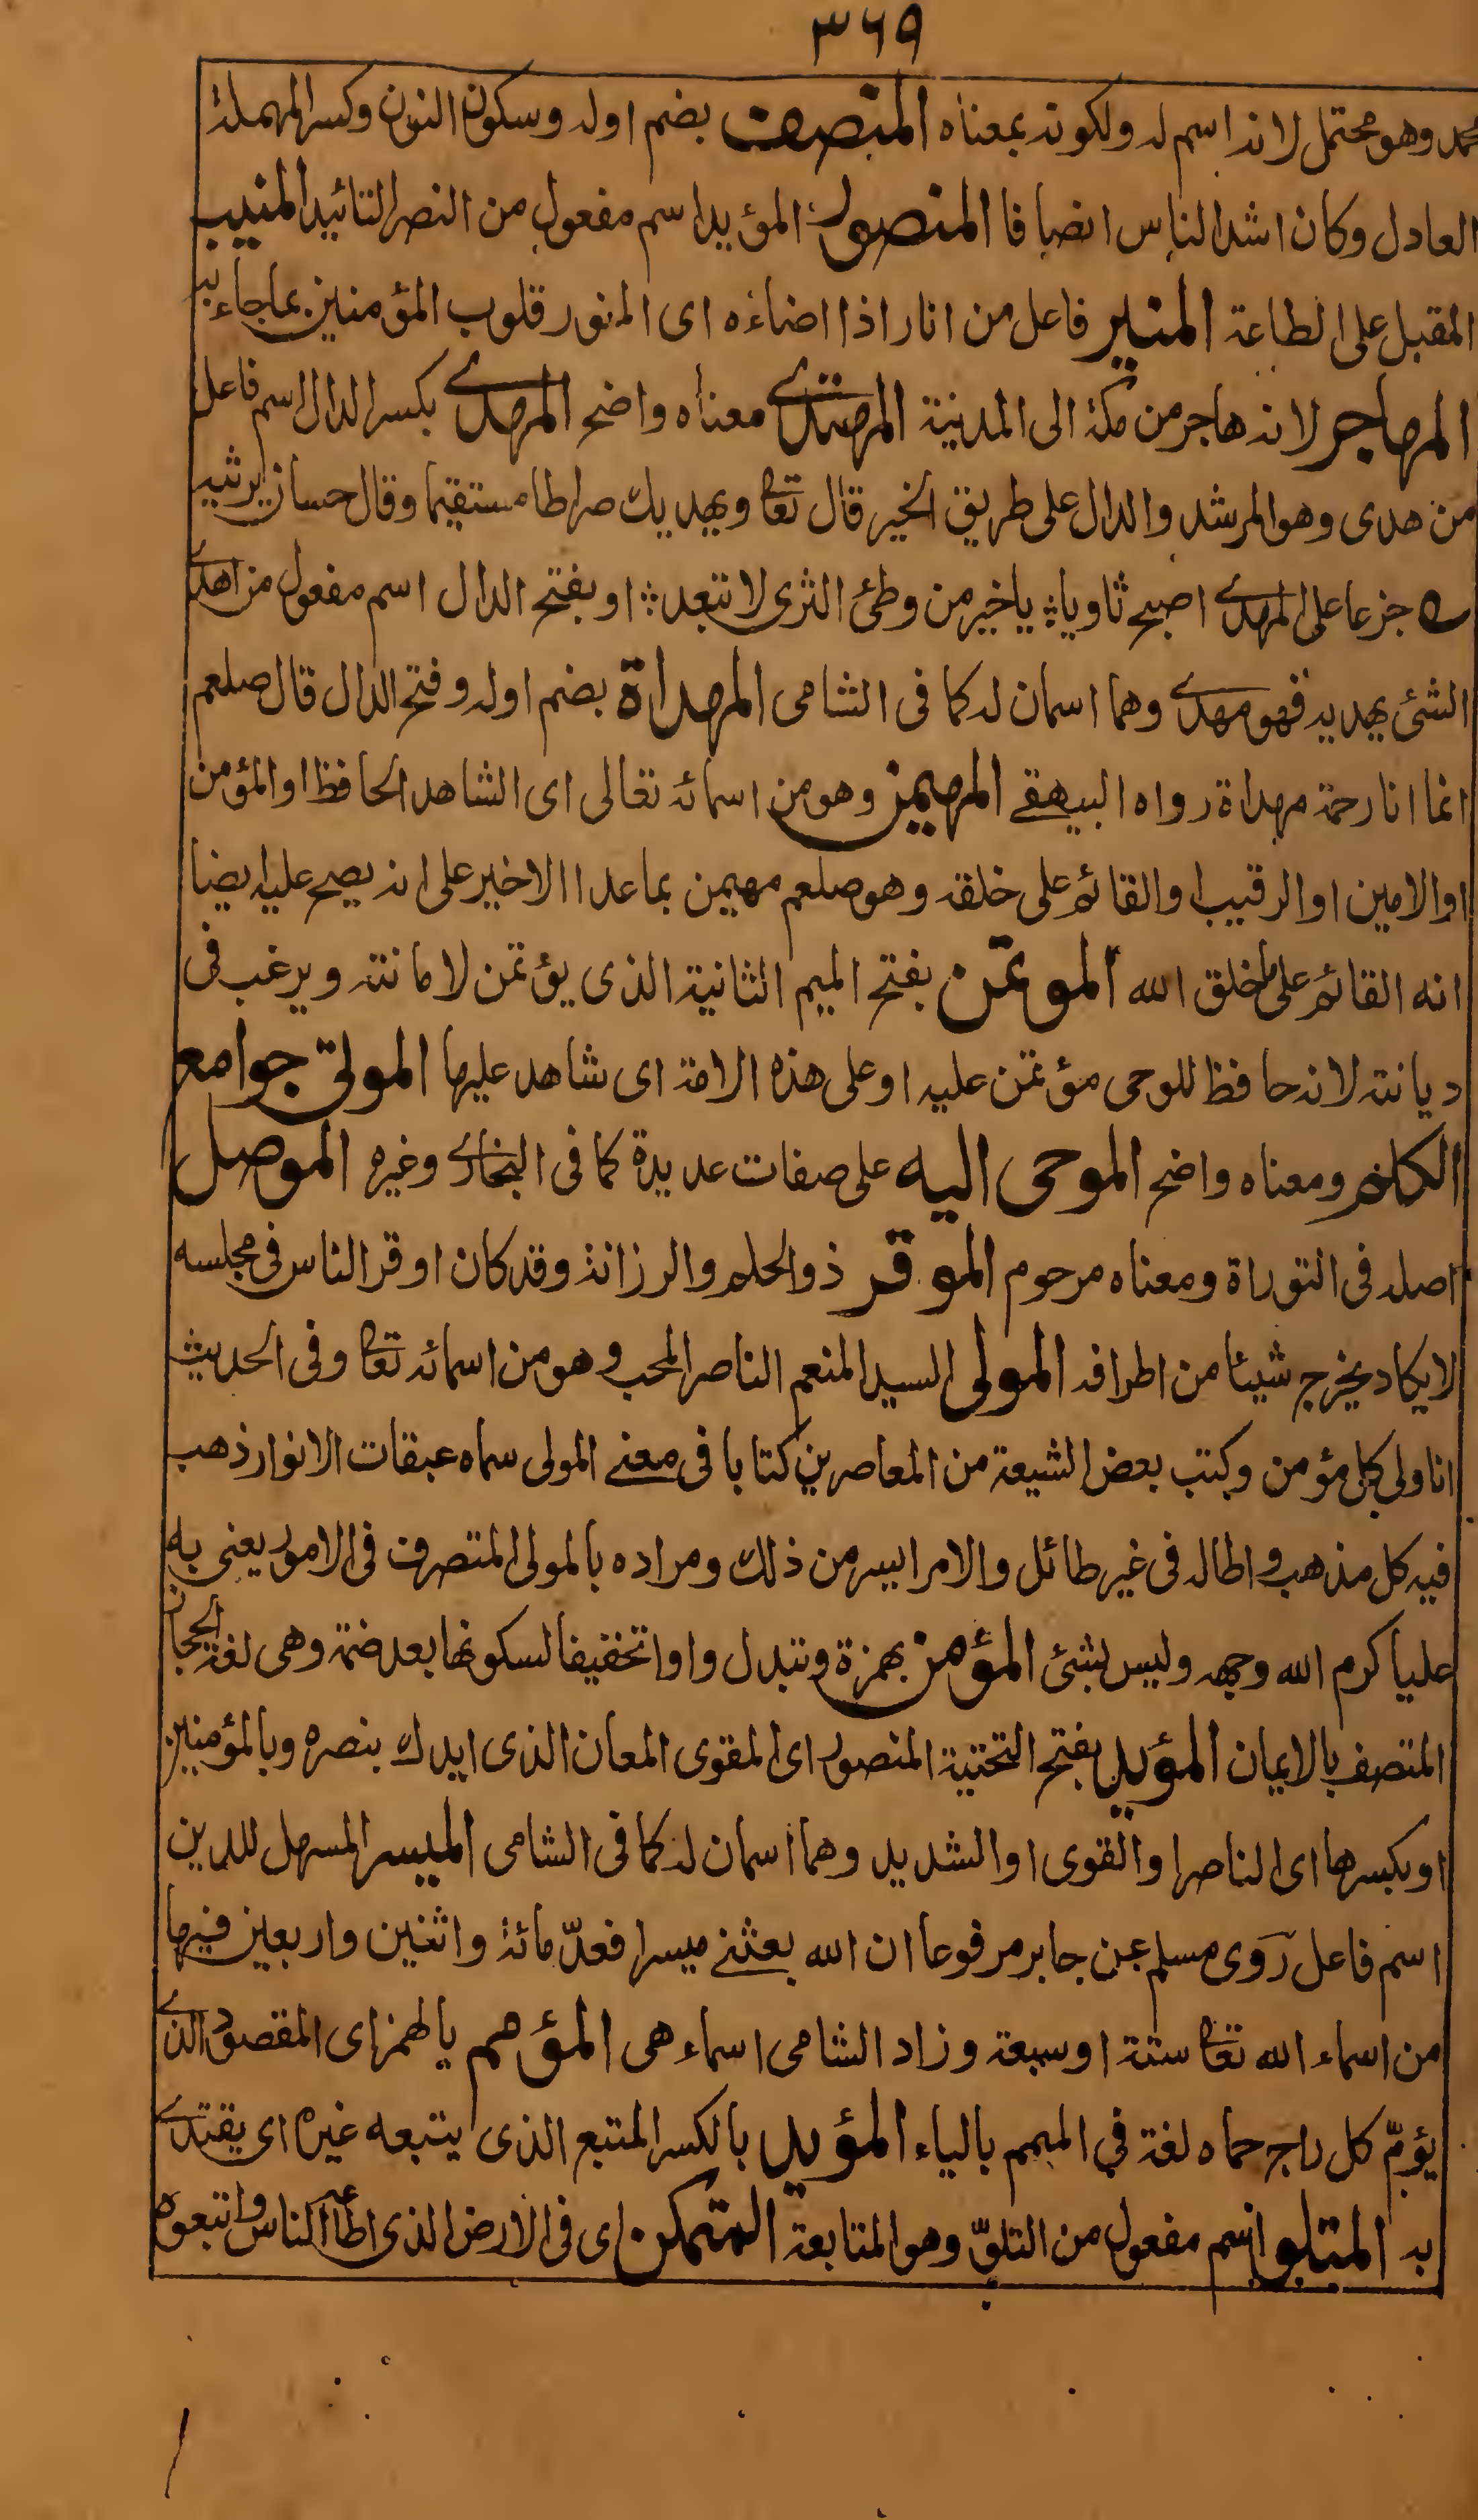 ٣٦٩
محمد وهو محتمل لانه اسم له ولكونه بمعناه المنصف بضم اوله وسكون النون وكسر المهملة
العادل وكان اشد الناس انصافا المنصور المؤيد اسم مفعول من النصر التائيد المنيب
المقبل على الطاعة المنير فاعل من انار اذا اضاءه اى المنور قلوب المؤمنين بما جاء به
المهاجر لانه هاجر من مكة الى المدينة المهتدى معناه واضح المهدى بكسر الدال اسم فاعل
من هدى وهو المرشد والدال على طريق الخير قال تعا ويهديك صراطا مستقيما وقال حسان يرثيه
ے جزعا على المهدى اصبح ثاويا ؞ يا خير من وطئ الثرى لا تبعد ؞ او بفتح الدال اسم مفعول من اهدى
الشئ يهديه فهو مهدى وهما اسمان له كما فى الشامى المهداة بضم اوله وفتح الدال قال صلعم
انما انا رحمة مهداة رواه البيهقے المهيمن وهو من اسمائه تعالى اى الشاهد الحافظ او المؤمن
او الامين او الرقيب او القائم على خلقه وهو صلعم مهيمن بما عدا الاخير على انه يصح عليه ايضا
انه القائم على خلق الله الموتمن بفتح الميم الثانية الذى يؤتمن لامانته ويرغب فى
ديانته لانه حافظ للوحى مؤتمن عليه او على هذه الامة اى شاهد عليها المولى جوامع
الكلم ومعناه واضح الموحى اليه على صفات عديدة كما فى البخارى وغيره الموصل
اصله فى التوراة ومعناه مرحوم الموقر ذو الحلم والرزانة وقد كان اوقر الناس فى مجلسه
لا يكاد يخرج شيئا من اطرافه المولى السيد المنعم الناصر المحب وهو من اسمائه تعا وفى الحديث
انا ولى كل مؤمن وكتب بعض الشيعة من المعاصرين كتابا فى معنے المولى سماه عبقات الانوار ذهب
فيه كل مذهب و اطاله فى غير طائل والامر ايسر من ذلك ومراده بالمولى المتصرف فى الامور يعنى به
عليا كرم الله وجهه وليس بشئ المؤمن بهمزة وتبدل واوا تخفيفا لسكونها بعد ضمة وهى لغة الحجاز
المتصف بالايمان المؤيد بفتح التحتية المنصور اى المقوى المعان الذى ايدك بنصره وبالمؤمنين
او بكسرها اى الناصر او القوى او الشديد وهما اسمان له كما فى الشامى الميسر المسهل للدين
اسم فاعل روى مسلم عن جابر مرفوعا ان الله بعثنے ميسرا فعدّ مائة واثنين واربعين فيها
من اسماء الله تعا ستة او سبعة وزاد الشامى اسماء هى المؤمم يالهمز اى المقصود الذى
يؤمّ كل راج حماه لغة في الميمم بالياء المؤيد بالكسر المتبع الذى يتبعه غيره اى يقتدى
به المتلو اسم مفعول من التلوّ وهو المتابعة المتمكن اى فى الارض الذى اطاعه الناس واتبعوه